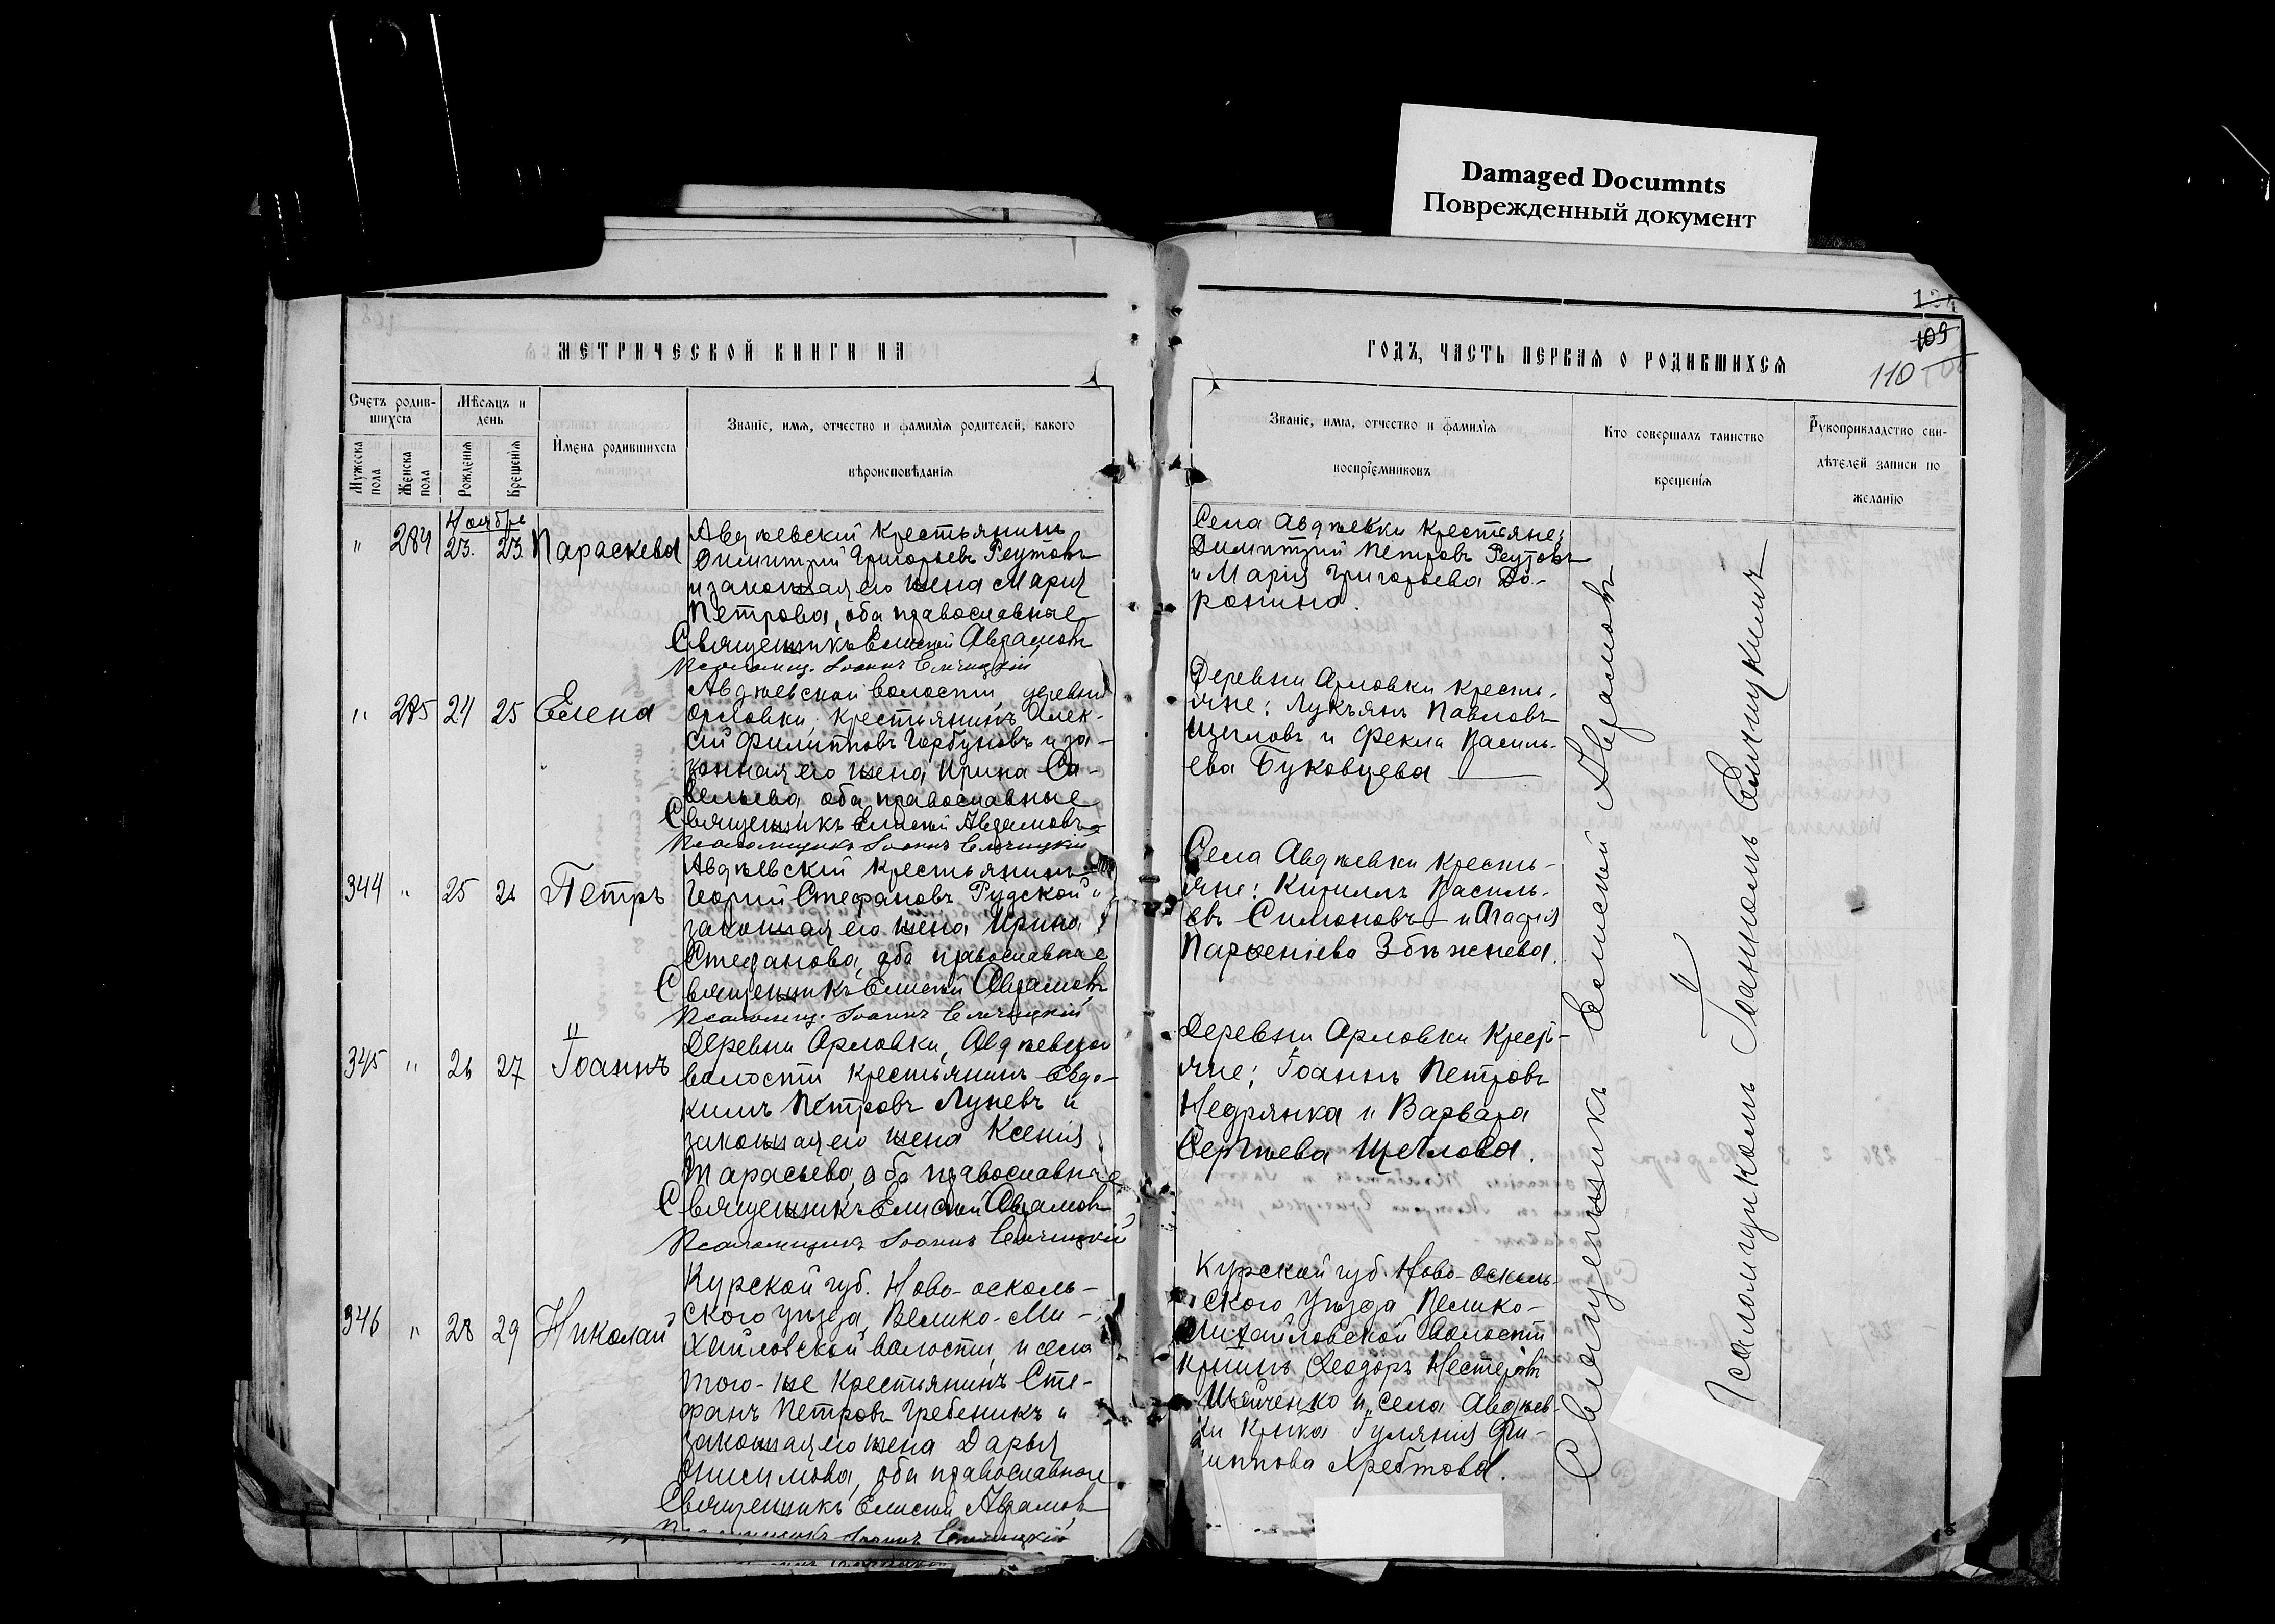 Damaged Documnts
Поврежденный документ
109
110
МЕТРИЧЕСКОЙ КНИГИ НА
ГОДЪ, ЧАСТЬ ПЕРВАЯ О РОДИВШИХСЯ
Счетъ родив-
шихся
Мужеска пола
Женска пола
Мѣсяцъ и
день
Рожденія
Крещенія
Имена родившихся
Званіе, имя, отчество и фамилія родителей, какого
вѣроисповѣданія
Званіе, имя, отчество и фамилія
воспріемниковъ
Кто совершалъ таинство
крещенія
Рукоприкладство сви-
дѣтелей записи по
желанію
Ноябрь
" 284 23. 23. Параскева
Авдѣевскій крестьянинъ
Димитрій Григорьевъ Реутовъ
и законная его жена Марія
Петрова, оба православные
Священникъ Елисей Авраамовъ
Псаломщ. Іоаннъ
Села Авдѣевки крестьяне:
Димитрій Петровъ Реутовъ
и Марія Григорьева До-
ронина.
" 285 24 25 Елена
Авдѣевской волости, деревни
Орловки крестьянинъ Алек-
сій Филипповъ Горбуновъ и за-
конная его жена Ирина Са-
вельева, оба православные
Священникъ Елисей Авраамовъ
Псаломщикъ Іоаннъ
Деревни Орловки кресть-
яне: Лукъянъ Павловъ
Щегловъ и Фекла Василь-
ева Буковцева
344 " 25 26 Петръ
Авдѣевскій крестьянинъ
Георгій Стефановъ Рудской и
законная его жена Ирина
Стефанова, оба православные
Священникъ Елисей Авраамовъ
Псаломщ. Іоаннъ
Села Авдѣевки кресть-
яне: Кириллъ Василь-
евъ Симоновъ и Агафія
Парѳеніева Збѣжнева.
345 " 26 27 Іоаннъ
Деревни Орловки, Авдѣевской
волости крестьянинъ Евдо-
кимъ Петровъ Луневъ и
законная его жена Ксенія
Тарасьева, оба православные
Священникъ Елисей Авраамовъ
Псаломщикъ Іоаннъ
Деревни Орловки крест-
яне: Іоаннъ Петровъ
Недрянка и Варвара
Сергѣева Щеглова.
346 " 28 29 Николай
Курской губ. Ново-осколь-
ского уѣзда, Велико-Ми-
хайловской волости, и села
того-же крестьянинъ Сте-
фанъ Петровъ Гребеникъ и
законная его жена Дарья
Онисимова, оба православные
Священникъ Елисей Авраамовъ
Іоаннъ
Курской губ. Ново-осколь-
ского уѣзда Велико-
Михайловской волости
кр-инъ Ѳеодоръ Нестеровъ
и села Авдѣев-
ки кр-нка Іуліанія Фи-
липпова Хребтова.
Священникъ Елисей Авраамовъ
Псаломщикомъ Іоанномъ